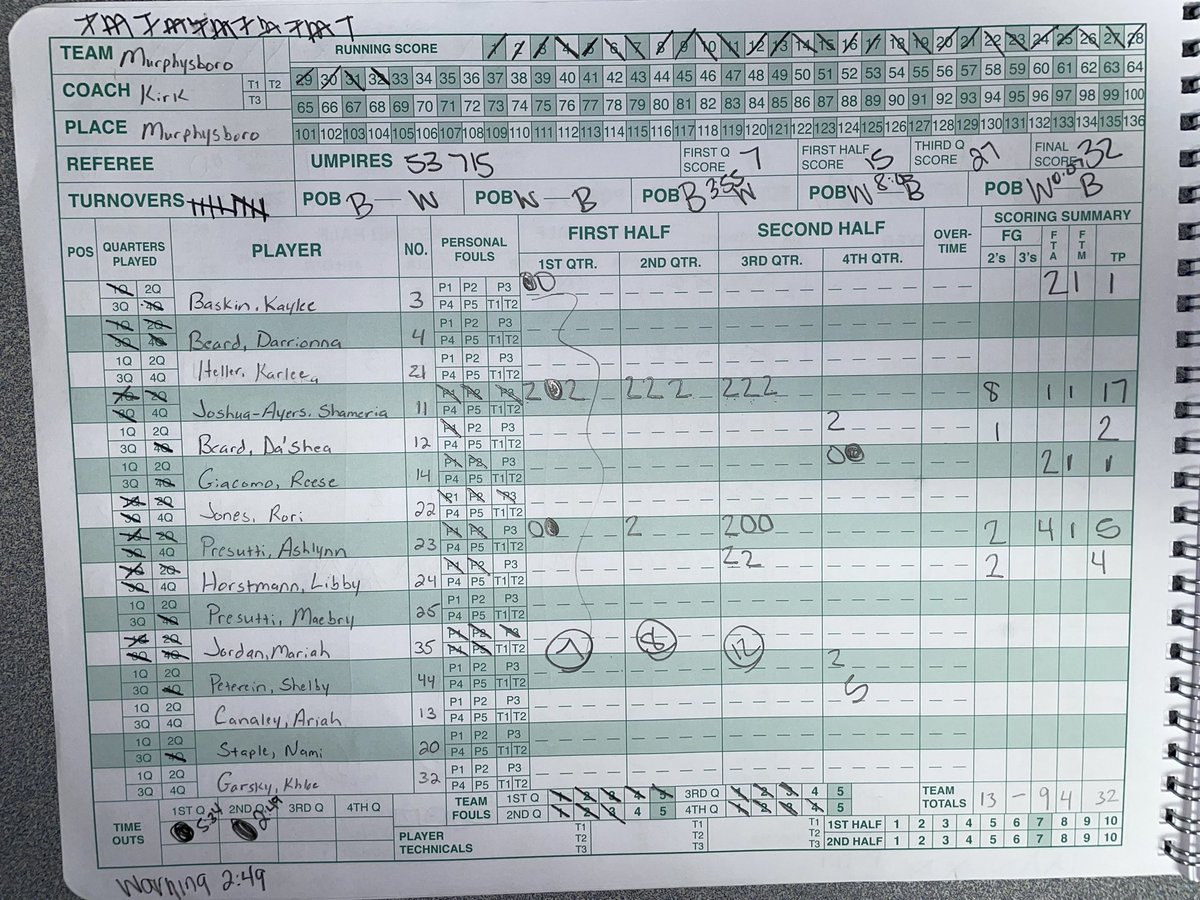 TEAM Murphysboro RUNNING SCORE 1 2 3 4 5 6 7 8 9 10 11 12 13 14 15 16 17 18 19 20 21 22 23 24 25 26 27 28
29 30 31 32 33 34 35 36 37 38 39 40 41 42 43 44 45 46 47 48 49 50 51 52 53 54 55 56 57 58 59 60 61 62 63 64
COACH Kirk T1 T2 T3 65 66 67 68 69 70 71 72 73 74 75 76 77 78 79 80 81 82 83 84 85 86 87 88 89 90 91 92 93 94 95 96 97 98 99 100
PLACE Murphysboro 101 102 103 104 105 106 107 108 109 110 111 112 113 114 115 116 117 118 119 120 121 122 123 124 125 126 127 128 129 130 131 132 133 134 135 136
REFEREE UMPIRES 53715 FIRST Q SCORE 7 FIRST HALF SCORE 15 THIRD Q SCORE 27 FINAL SCORE 32
TURNOVERS POB B — W POB W — B POB B 3:55 W POB W 8:00 B POB W B
POS QUARTERS PLAYED PLAYER NO. PERSONAL FOULS FIRST HALF SECOND HALF OVER-TIME SCORING SUMMARY
1ST QTR. 2ND QTR. 3RD QTR. 4TH QTR. FG 2's 3's FTA FTM TP
1Q 2Q 3Q 4Q Baskin, Kaylee 3 P1 P2 P3 P4 P5 T1 T2 00 2 1 1
1Q 2Q 3Q 4Q Beard, Darrionna 4 P1 P2 P3 P4 P5 T1 T2
1Q 2Q 3Q 4Q Heller, Karlee 21 P1 P2 P3 P4 P5 T1 T2
1Q 2Q 3Q 4Q Joshua-Ayers, Shameria 11 P1 P2 P3 P4 P5 T1 T2 202 222 222 8 1 1 17
1Q 2Q 3Q 4Q Beard, Da'Shea 12 P1 P2 P3 P4 P5 T1 T2 2 1 2
1Q 2Q 3Q 4Q Giacomo, Reese 14 P1 P2 P3 P4 P5 T1 T2 00 2 1 1
1Q 2Q 3Q 4Q Jones, Rori 22 P1 P2 P3 P4 P5 T1 T2
1Q 2Q 3Q 4Q Presutti, Ashlynn 23 P1 P2 P3 P4 P5 T1 T2 00 2 200 2 4 1 5
1Q 2Q 3Q 4Q Horstmann, Libby 24 P1 P2 P3 P4 P5 T1 T2 22 2 4
1Q 2Q 3Q 4Q Presutti, Maebry 25 P1 P2 P3 P4 P5 T1 T2
1Q 2Q 3Q 4Q Jordan, Mariah 35 P1 P2 P3 P4 P5 T1 T2 7 8 12
1Q 2Q 3Q 4Q Peterein, Shelby 44 P1 P2 P3 P4 P5 T1 T2 2
5
1Q 2Q 3Q 4Q Canaley, Ariah 13 P1 P2 P3 P4 P5 T1 T2
1Q 2Q 3Q 4Q Staple, Nami 20 P1 P2 P3 P4 P5 T1 T2
1Q 2Q 3Q 4Q Garsky, Khloe 32 P1 P2 P3 P4 P5 T1 T2
TIME OUTS 1ST Q 5:34 2ND Q 2:49 3RD Q 4TH Q
TEAM FOULS 1ST Q 1 2 3 4 5 3RD Q 1 2 3 4 5 TEAM TOTALS 13 – 9 4 32
2ND Q 1 2 3 4 5 4TH Q 1 2 3 4 5 1ST HALF 1 2 3 4 5 6 7 8 9 10
PLAYER TECHNICALS T1 T2 T3 T1 T2 T3 T1 T2 T3 2ND HALF 1 2 3 4 5 6 7 8 9 10
Warning 2:49